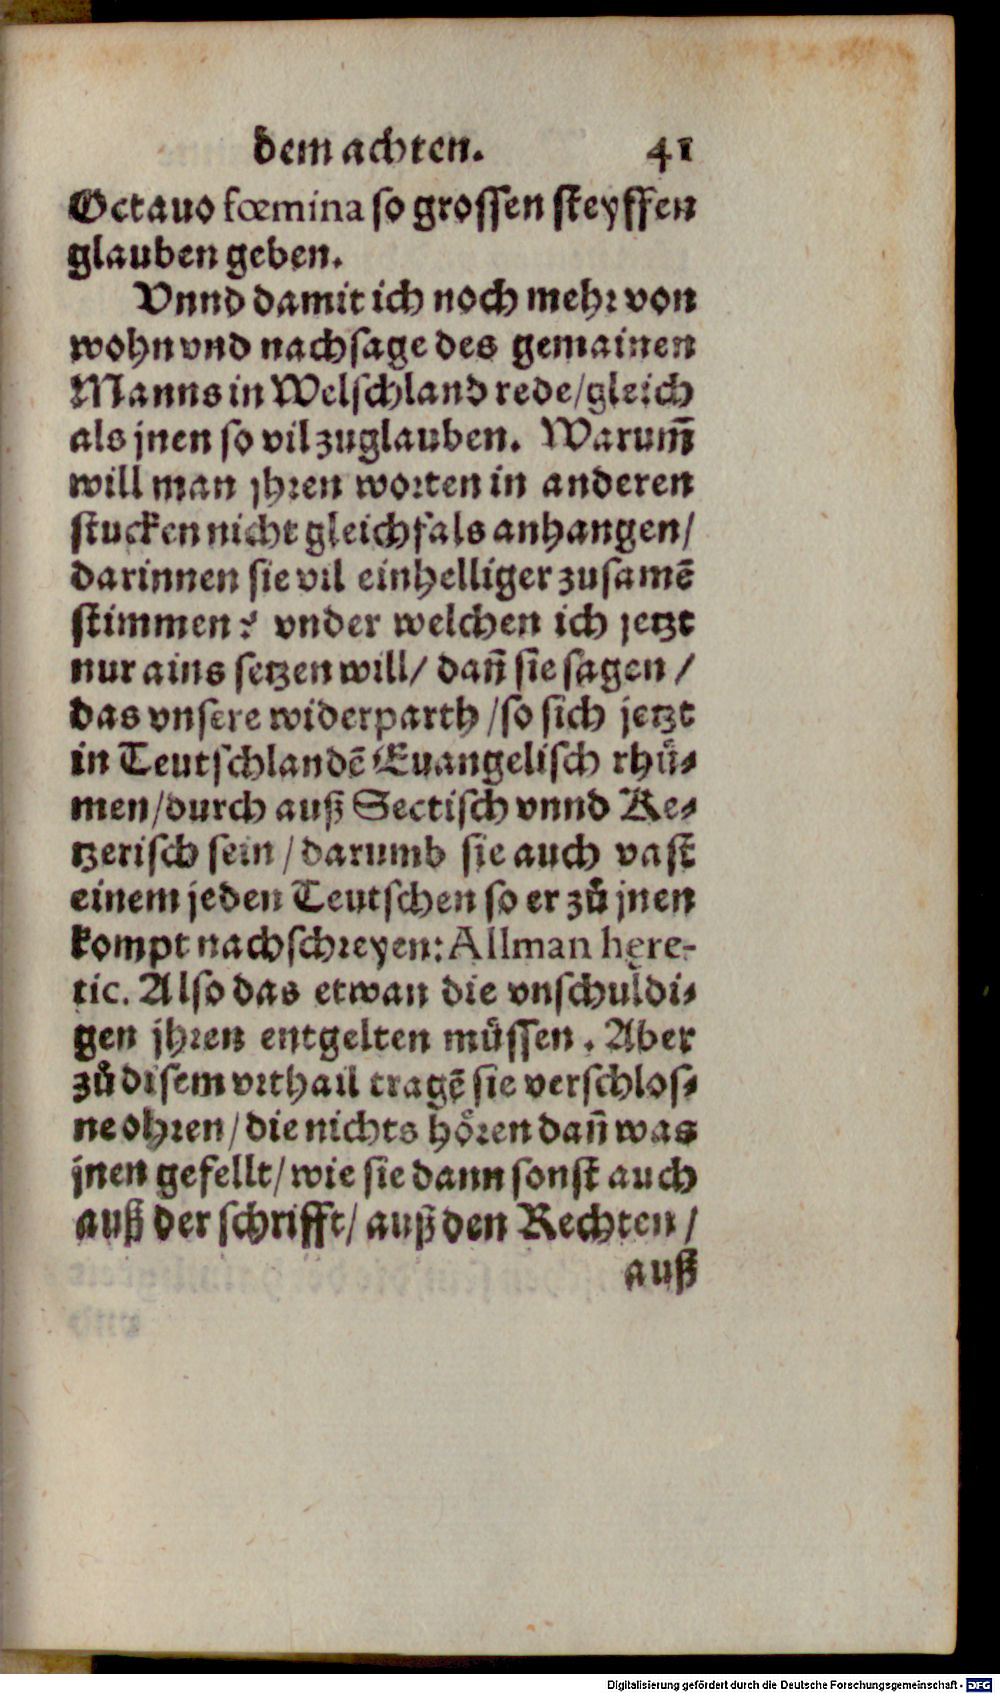 dem achten. 41
Octauo fœmina so grossen steyffen
glauben geben.
Vnnd damit ich noch mehr von
wohn vnd nachsage des gemainen
Manns in Welschland rede/gleich
als jnen so vil zuglauben. Warum̃
will man jhren worten in anderen
stucken nicht gleichfals anhangen/
darinnen sie vil einhelliger zusamẽ
stimmen? vnder welchen ich jetzt
nur ains setzen will/ dañ sie sagen/
das vnsere widerparth/so sich jetzt
in Teutschlandẽ Euangelisch rhuͤ⸗
men/durch auß Sectisch vnnd Ke⸗
tzerisch sein/darumb sie auch vast
einem jeden Teutschen so er zuͦ jnen
kompt nachschreyen: Allman here-
tic. Also das etwan die vnschuldi⸗
gen jhren entgelten muͤssen. Aber
zuͦ disem vrthail tragẽ sie verschlos⸗
ne ohren/die nichts hoͤren dañ was
jnen gefellt/wie sie dann sonst auch
auß der schrifft/auß den Rechten/
auß
Digitalisierung gefördert durch die Deutsche Forschungsgemeinschaft - DFG